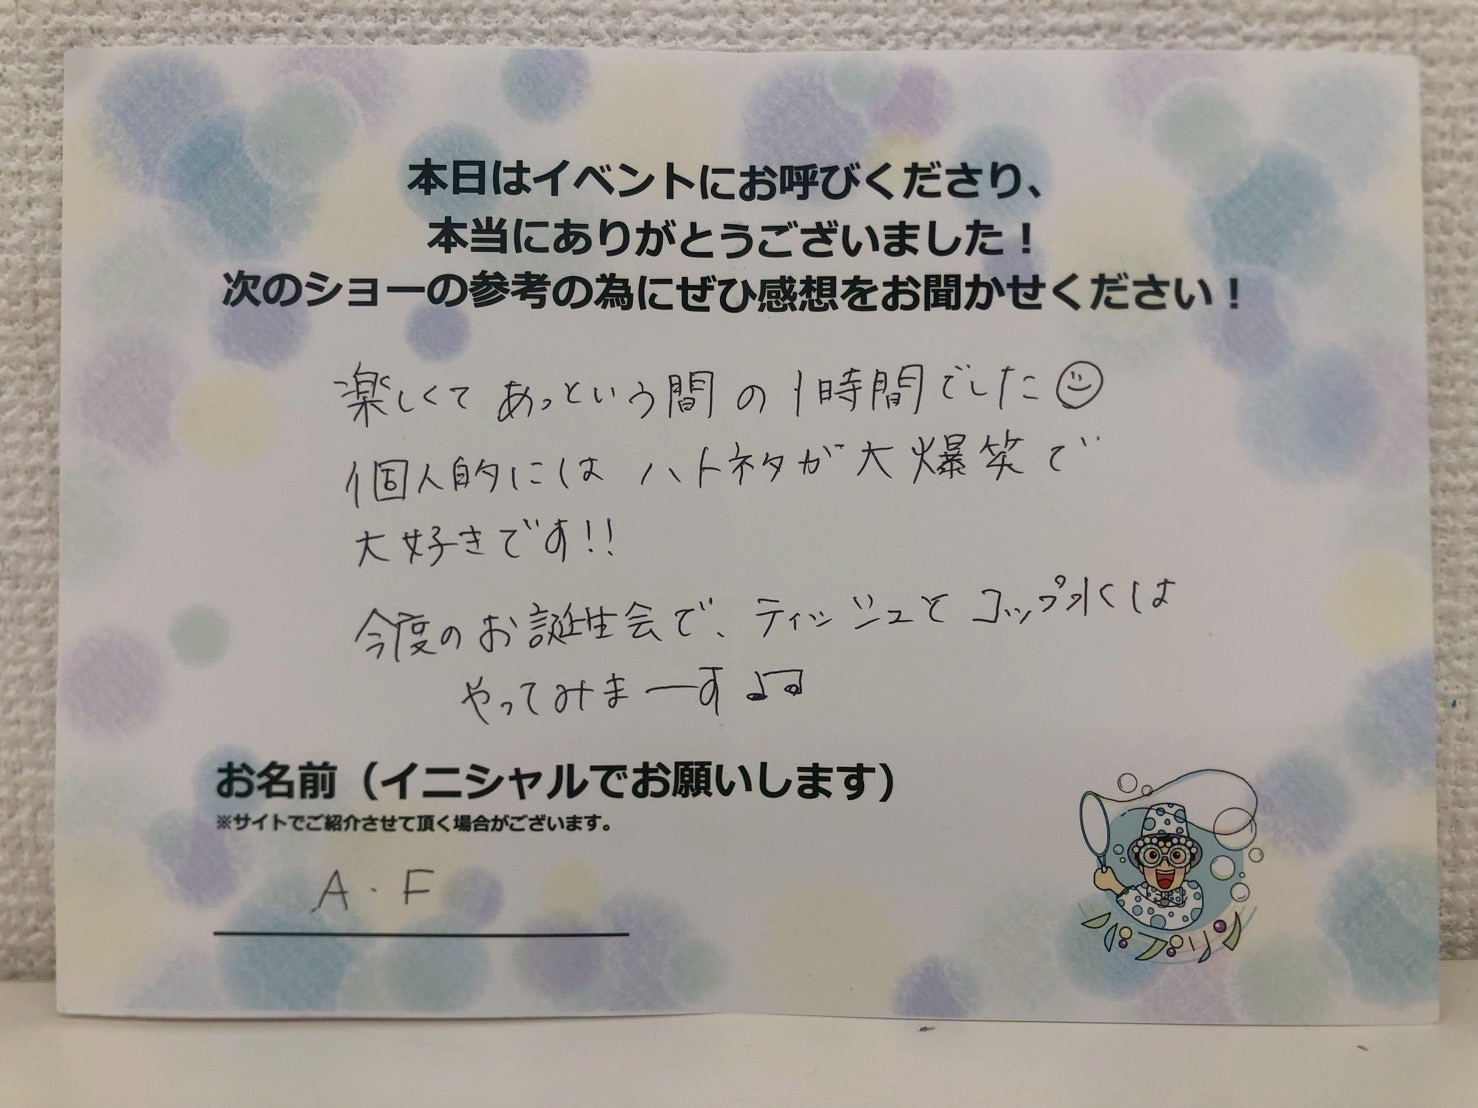 本日はイベントにお呼びくださり、
本当にありがとうございました！
次のショーの参考の為にぜひ感想をお聞かせください！
楽しくてあっという間の1時間でした
個人的にはハトネタが大爆笑で
大好きです!!
今度のお誕生会で、ティッシュとコップ水くは
やってみまーす♫
お名前（イニシャルでお願いします）
※サイトでご紹介させて頂く場合がございます。
A.F
バブリン